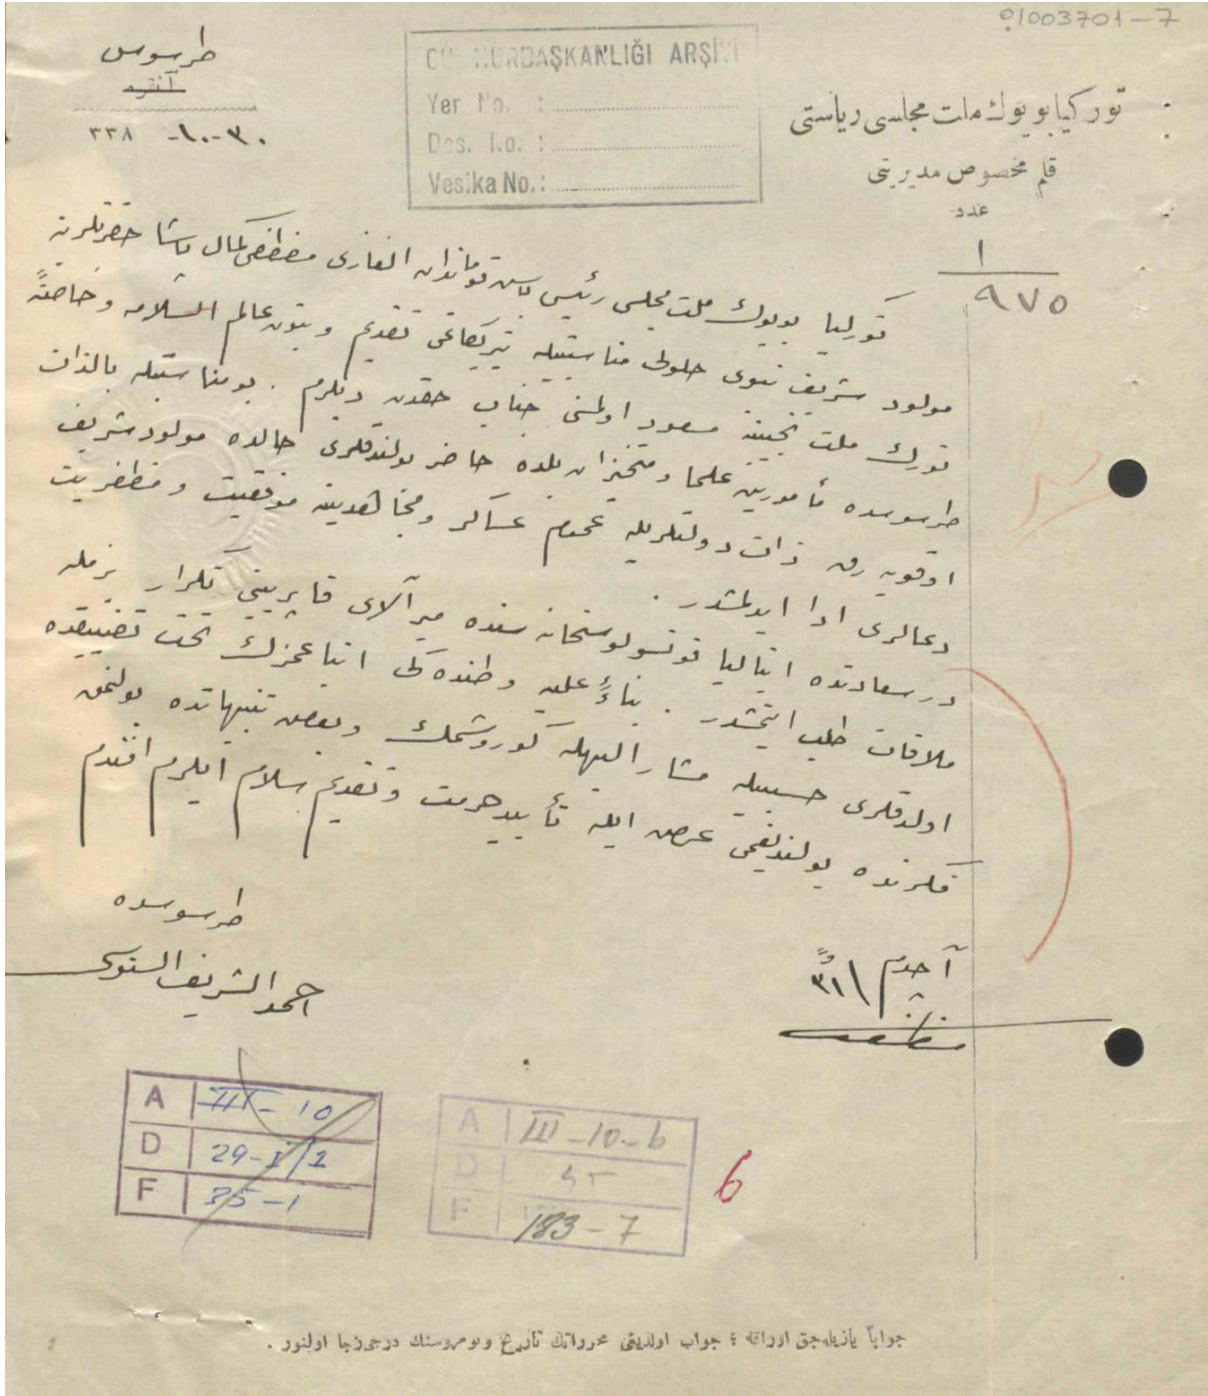 01003701-7
طرسوس
آنقره
٣٠-١٠-٣٣٨
CUMHURBAŞKANLIĞI ARŞİVİ
Yer No. :
Dos. No. :
Vesika No. :
توركيا بويوك ملت مجلسى رياستى
قلم مخصوص مديريتى
عدد
١
٩٧٥
توركيا بويوك ملت مجلسى رئيسى باش قوماندان الغازى مصطفى كمال پاشا حضرتلرينه
مولود شريف نبوى حلولى مناسبتيله تبريكاتمى تقديم وبتون عالم اسلامه وخاصةً
تورك ملت نجيبه‌سنه مسعود اولمسنى جناب حقدن ديلرم . بو مناسبتله بالذات
طرسوسده مأمورين علما ومتحيزان بلده حاضر بولندقلرى حالده مولود شريف
اوقويه‌رق ذات دولتلريله عموم عساكر ومجاهدينه موفقيت ومظفريت
دعالرى ادا ايدلمشدر .
درسعادتده ايتاليا قونسولوسخانه سنده ميرآلاى قاپرينى تكرار بزمله
ملاقات طلب ايتمشدر . بناءً عليه وطنده كى اتباعمزك تحت تضييقده
اولدقلرى حسبيله مشار اليهله كوروشمك وبعض تنبيهاتده بولنمق
فكرنده بولنديغمى عرض ايله تأييد حرمت وتقديم سلام ايلرم افندم
طرسوسده
احمد الشريف السنوسى
آچدم ٣١
A III-10
D 29-I/1
F 35-1
A III-10-6
D 45
F 183-7
6
جواباً يازيله‌جق اوراقه ؛ جواب اولديغى محرراتك تاريخ ونومروسنك درجى رجا اولنور .